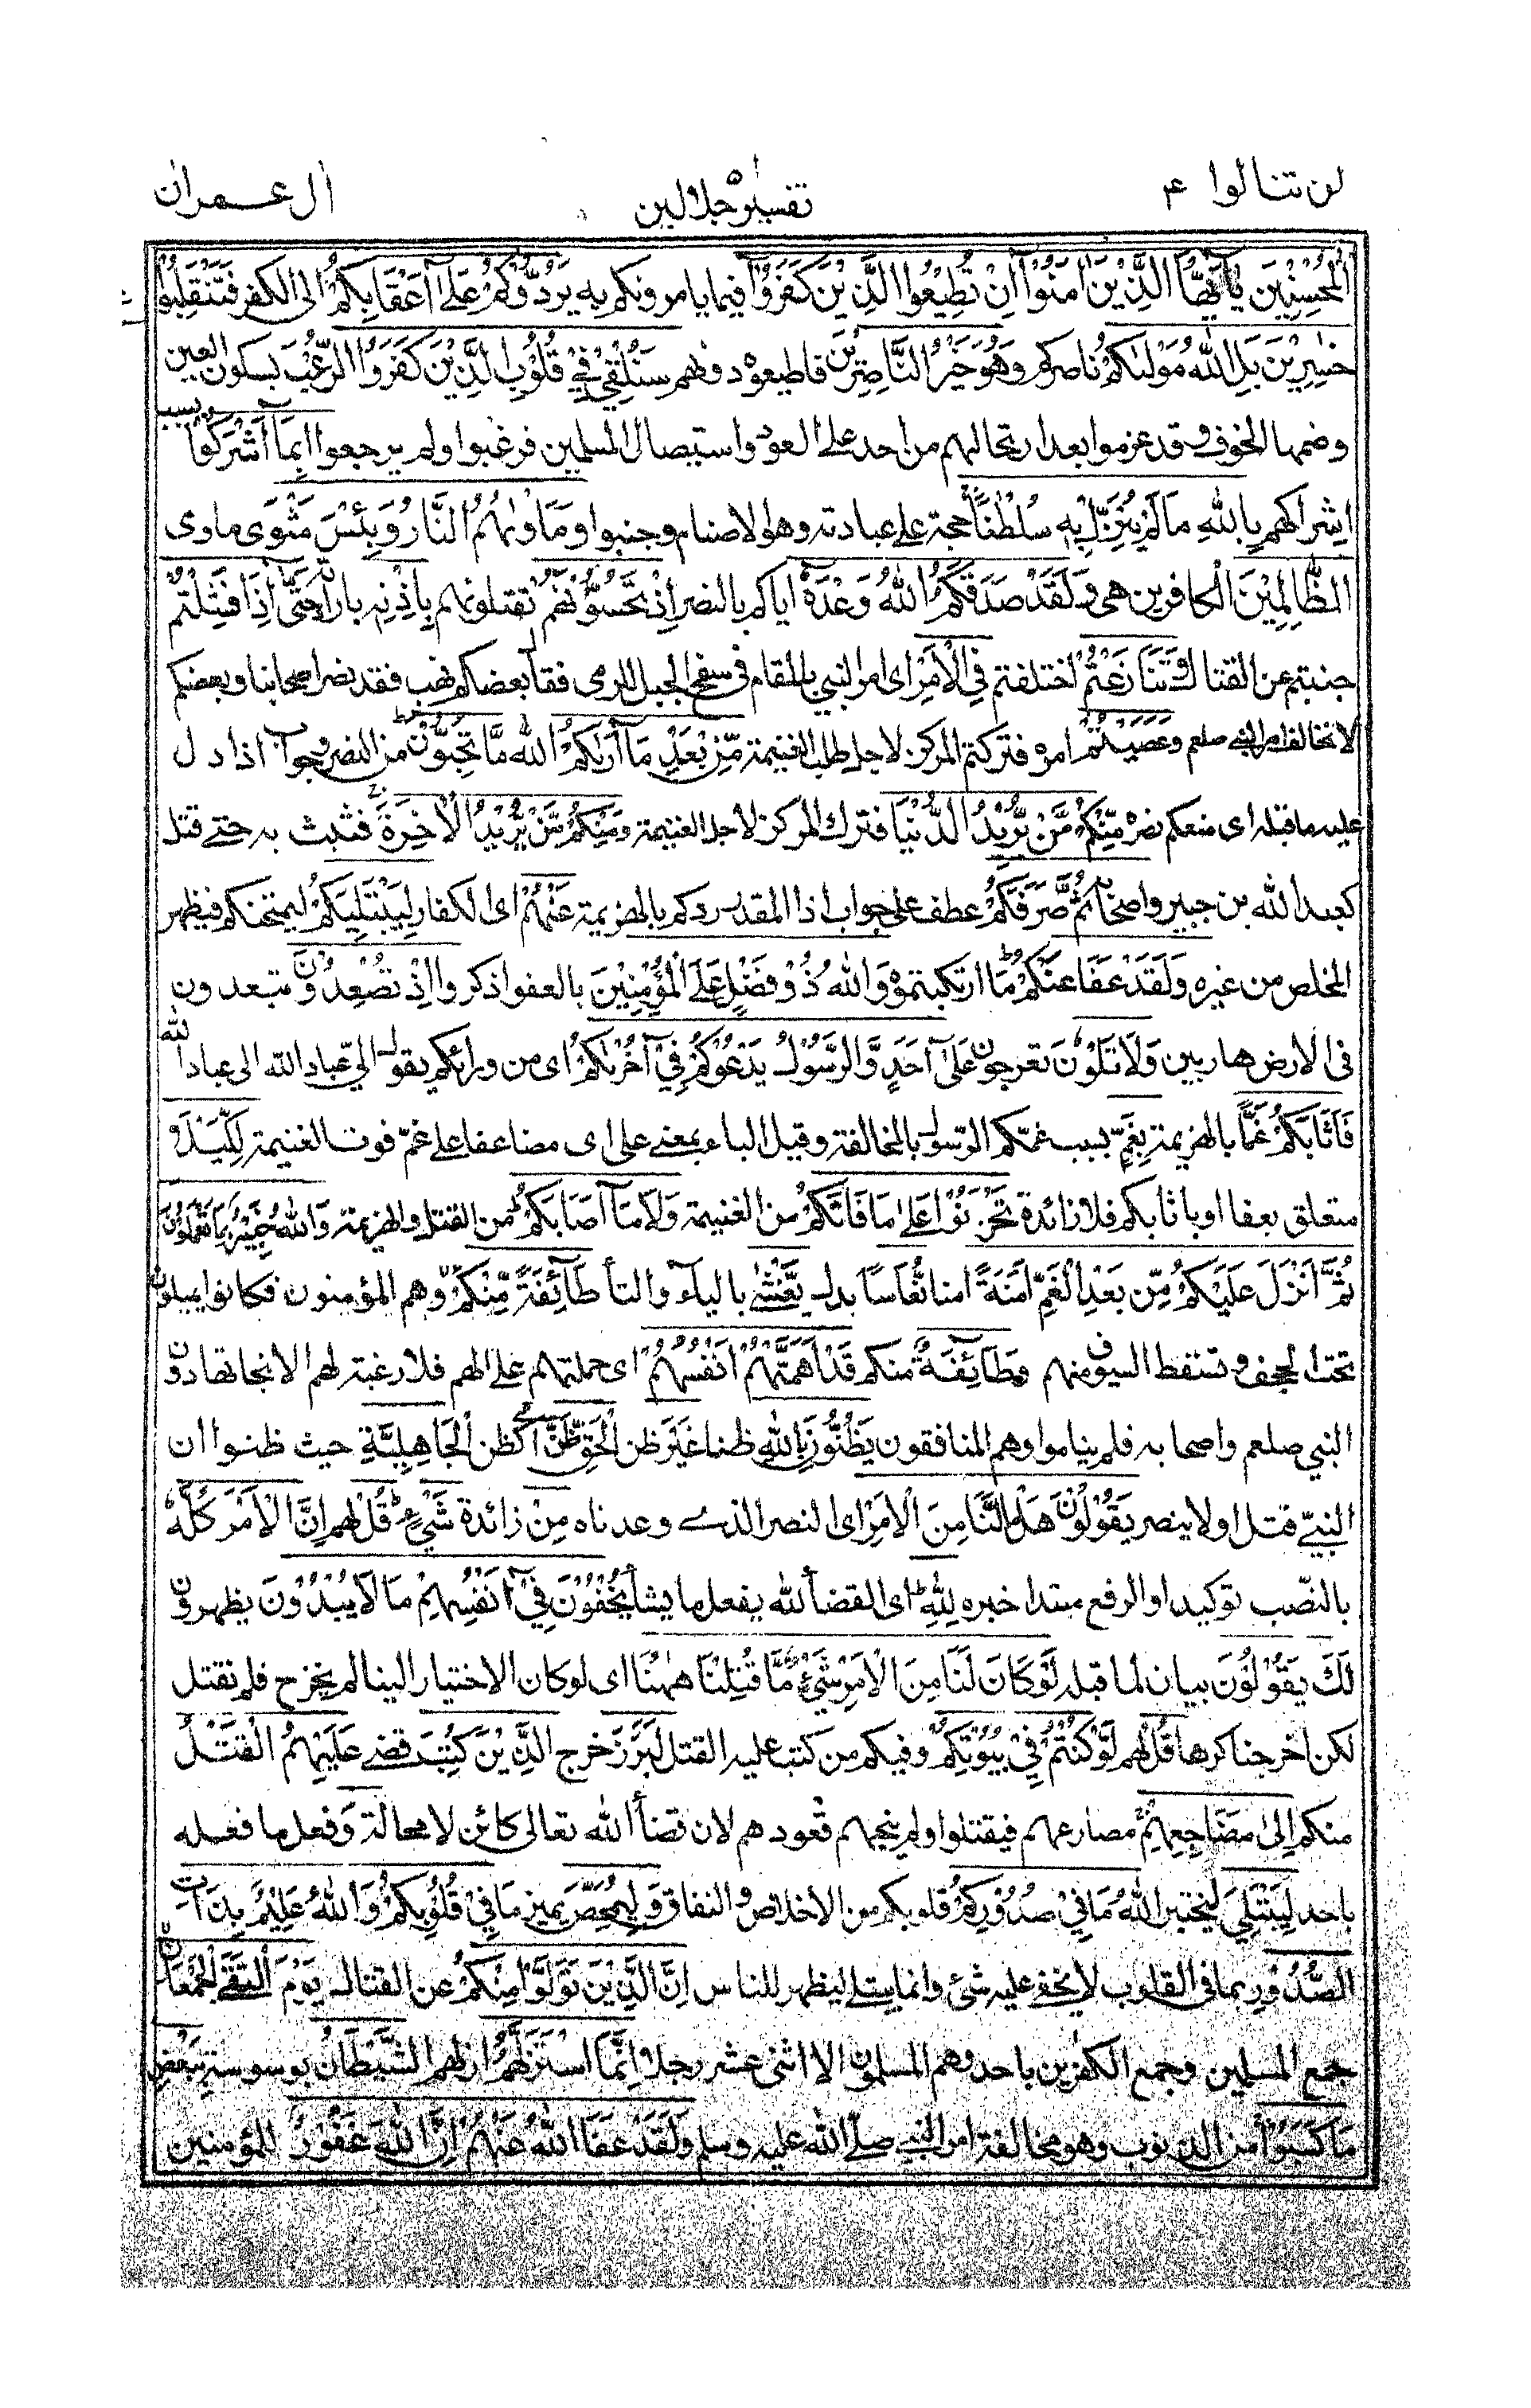 لن تنالوا ٤
تفسير جلالين
ال عمران
الْمُحْسِنِيْنَ يٰۤاَيُّهَا الَّذِيْنَ اٰمَنُوْۤا اِنْ تُطِيْعُوا الَّذِيْنَ كَفَرُوْا فيما يامرونكم به يَرُدُّوْكُمْ عَلٰۤى اَعْقَابِكُمْ الى الكفر فَتَنْقَلِبُوْا
خٰسِرِيْنَ بَلِ اللّٰهُ مَوْلٰىكُمْ ناصركم وَهُوَ خَيْرُ النَّاصِرِيْنَ فاطيعوه دونهم سَنُلْقِيْ فِيْ قُلُوْبِ الَّذِيْنَ كَفَرُوا الرُّعْبَ بسكون العين
وضمها الخوف وقد عزموا بعد ارتحالهم من احد على العود واستيصال المسلمين فرغبوا ولم يرجعوا بِمَاۤ اَشْرَكُوْا بسبب
اشراكهم بِاللّٰهِ مَا لَمْ يُنَزِّلْ بِهٖ سُلْطٰنًا حجة على عبادته وهو الاصنام وجنبوا وَمَاْوٰىهُمُ النَّارُ وَبِئْسَ مَثْوَى ماوى
الظّٰلِمِيْنَ الكافرين هى وَلَقَدْ صَدَقَكُمُ اللّٰهُ وَعْدَهٗۤ اياكم بالنصر اِذْ تَحُسُّوْنَهُمْ تقتلونهم بِاِذْنِهٖ بارادته حَتّٰۤى اِذَا فَشِلْتُمْ
جنبتم عن القتال وَتَنَازَعْتُمْ اختلفتم فِي الْاَمْرِ اى امر النبي بالمقام فى سفح الجبل للرمى فقال بعضكم نذهب فقد نصر اصحابنا وبعضكم
لا نخالف امر النبى صلعم وَعَصَيْتُمْ امره فتركتم المركز لاجل طلب الغنيمة مِّنْۢ بَعْدِ مَاۤ اَرٰىكُمْ اللّٰهُ مَّا تُحِبُّوْنَ من النصر وجواب اذا دل
عليه ما قبله اى منعكم نصره مِنْكُمْ مَّنْ يُّرِيْدُ الدُّنْيَا فترك المركز لاجل الغنيمة وَمِنْكُمْ مَّنْ يُّرِيْدُ الْاٰخِرَةَ فثبت به حتى قتل
كعبد الله بن جبير واصحابه ثُمَّ صَرَفَكُمْ عطف على جواب اذا المقدر ردكم بالهزيمة عَنْهُمْ اى الكفار لِيَبْتَلِيَكُمْ ليمتحنكم فيظهر
المخلص من غيره وَلَقَدْ عَفَا عَنْكُمْ ما ارتكبتموه وَاللّٰهُ ذُوْ فَضْلٍ عَلَى الْمُؤْمِنِيْنَ بالعفو اذكروا اِذْ تُصْعِدُوْنَ تبعدون
فى الارض هاربين وَلَا تَلْوٗنَ تعرجون عَلٰۤى اَحَدٍ وَّالرَّسُوْلُ يَدْعُوْكُمْ فِيْۤ اُخْرٰىكُمْ اى من ورائكم يقول الىّ عباد الله الى عباد الله
فَاَثَابَكُمْ غَمًّا بالهزيمة بِغَمٍّ بسبب غمكم الرسول بالمخالفة وقيل الباء بمعنى على اى مضاعفا على غمّ فوت الغنيمة لِكَيْلَا
متعلق بعفا او باثابكم فلا زائدة تَحْزَنُوْا عَلٰى مَا فَاتَكُمْ من الغنيمة وَلَا مَاۤ اَصَابَكُمْ من القتل والهزيمة وَاللّٰهُ خَبِيْرٌۢ بِمَا تَعْمَلُوْنَ
ثُمَّ اَنْزَلَ عَلَيْكُمْ مِّنْۢ بَعْدِ الْغَمِّ اَمَنَةً امنا نُّعَاسًا بدل يَّغْشٰى بالياء والتاء طَآئِفَةً مِّنْكُمْ وهم المؤمنون فكانوا يميلون
تحت الجحف وتسقط السيوف منهم وَطَآئِفَةٌ منكم قَدْ اَهَمَّتْهُمْ اَنْفُسُهُمْ اى حملتهم على الهم فلا رغبة لهم الا نجاتها دون
النبي صلعم واصحابه فلم يناموا وهم المنافقون يَظُنُّوْنَ بِاللّٰهِ ظنا غَيْرَ ظن الْحَقِّ ظَنَّ اى كظن الْجَاهِلِيَّةِ حيث ظنوا ان
النبيّ قتل او لا ينصر يَقُوْلُوْنَ هَلْ لَّنَا مِنَ الْاَمْرِ اى النصر الذى وعدناه مِنْ زائدة شَيْءٍ قُلْ لهم اِنَّ الْاَمْرَ كُلَّهٗ
بالنصب توكيدا او الرفع مبتدا خبره لِلّٰهِ اى القضاء لله يفعل ما يشاء يُخْفُوْنَ فِيْۤ اَنْفُسِهِمْ مَا لَا يُبْدُوْنَ يظهرون
لَكَ يَقُوْلُوْنَ بيان لما قبله لَوْ كَانَ لَنَا مِنَ الْاَمْرِ شَيْءٌ مَّا قُتِلْنَا هٰهُنَا اى لو كان الاختيار الينا لم نخرج فلم نقتل
لكن اخرجنا كرها قُلْ لهم لَّوْ كُنْتُمْ فِيْ بُيُوْتِكُمْ وفيكم من كتب عليه القتل لَبَرَزَ خرج الَّذِيْنَ كُتِبَ قضى عَلَيْهِمُ الْقَتْلُ
منكم اِلٰى مَضَاجِعِهِمْ مصارعهم فيقتلوا ولم ينجهم قعودهم لان قضاء الله تعالى كائن لا محالة وَفعل ما فعله
باحد لِيَبْتَلِيَ ليختبر اللّٰهُ مَا فِيْ صُدُوْرِكُمْ قلوبكم من الاخلاص والنفاق وَلِيُمَحِّصَ يميز مَا فِيْ قُلُوْبِكُمْ وَاللّٰهُ عَلِيْمٌۢ بِذَاتِ
الصُّدُوْرِ بما فى القلوب لا يخفى عليه شئ وانما يبتلى ليظهر للناس اِنَّ الَّذِيْنَ تَوَلَّوْا مِنْكُمْ عن القتال يَوْمَ الْتَقَى الْجَمْعَانِ
جمع المسلمين وجمع الكفرين باحد وهم المسلمون الا اثنى عشر رجلا اِنَّمَا اسْتَزَلَّهُمُ ازلهم الشَّيْطَانُ بوسوسته بِبَعْضِ
مَا كَسَبُوْا من الذنوب وهو مخالفة امر النبى صلى الله عليه وسلم وَلَقَدْ عَفَا اللّٰهُ عَنْهُمْ اِنَّ اللّٰهَ غَفُوْرٌ للمؤمنين